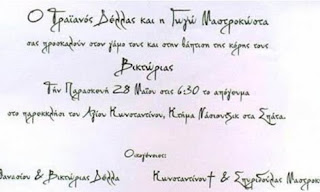 Ο Τραϊανός Δέλλας και η Γωγώ Μαστροκώστα
σας προσκαλούν στον γάμο τους και στην βάπτιση της κόρης τους
Βικτώριας
Την Παρασκευή 28 Μαΐου στις 6:30 το απόγευμα
στο παρεκκλήσι του Αγίου Κωνσταντίνου, Κτήμα Νάσιουτζικ στα Σπάτα.
Οικογένειες:
θανασίου & Βικτώριας Δέλλα Κωνσταντίνου† & Σπυριδούλας Μαστροκ